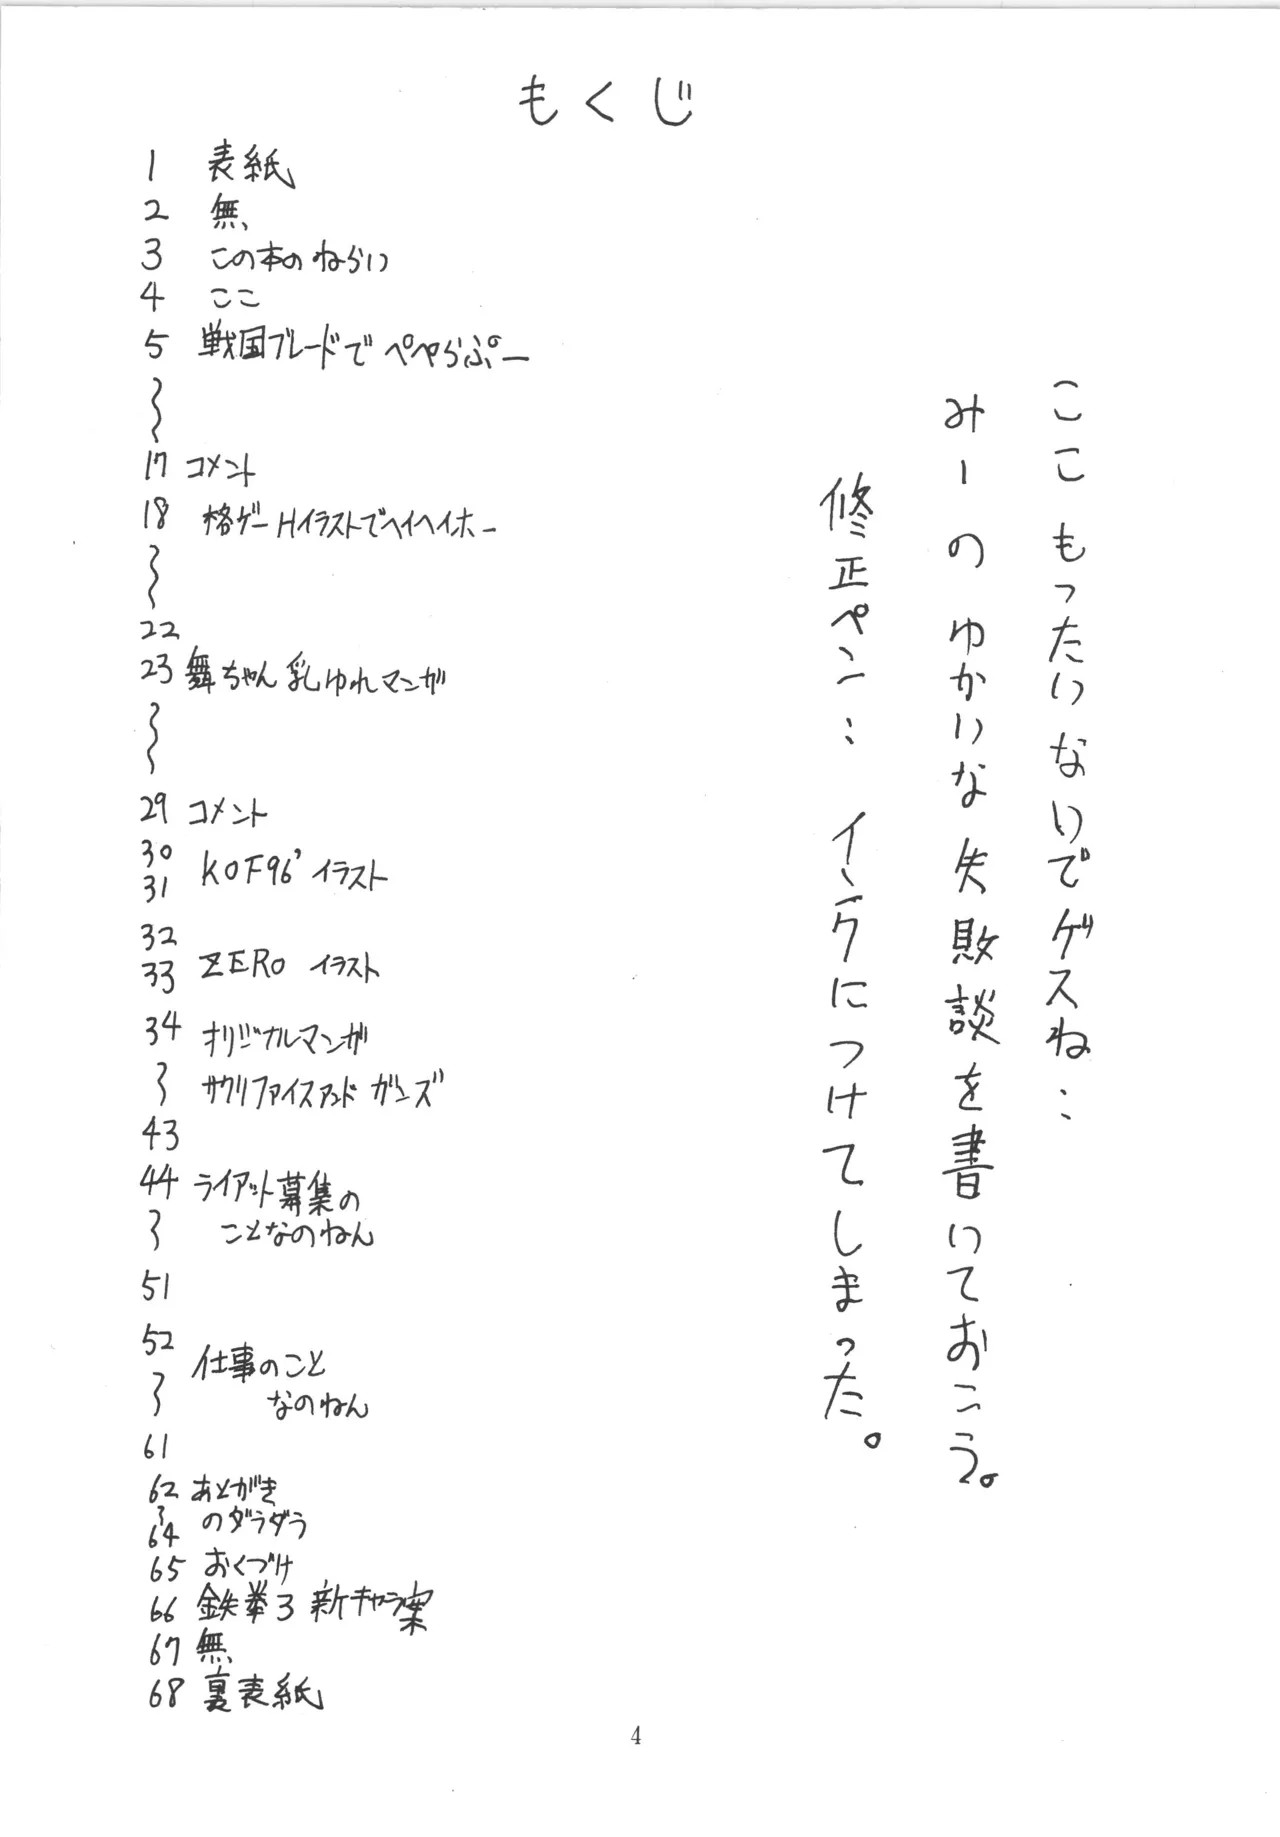 もくじ
1 表紙
2 無
3 この本のねらい
4 ここ
5 戦国ブレードでぺぺらぷー
〜
17 コメント
18 格ゲーHイラストでヘイヘイホー
〜
22
23 舞ちゃん乳ゆれマンガ
〜
29 コメント
30
31 KOF96' イラスト
32
33 ZERO イラスト
34 オリジナルマンガ
〜 サクリファイスアンド ガンズ
43
44 ライアット募集の
〜 ことなのねん
51
52 仕事のこと
〜 なのねん
61
62 あとがき
〜 のダラダラ
64
65 おくづけ
66 鉄拳3 新キャラ案
67 無
68 裏表紙
ここもったいないでゲスね…
みーのゆかいな失敗談を書いておこう。
修正ペン… インクにつけてしまった。
4